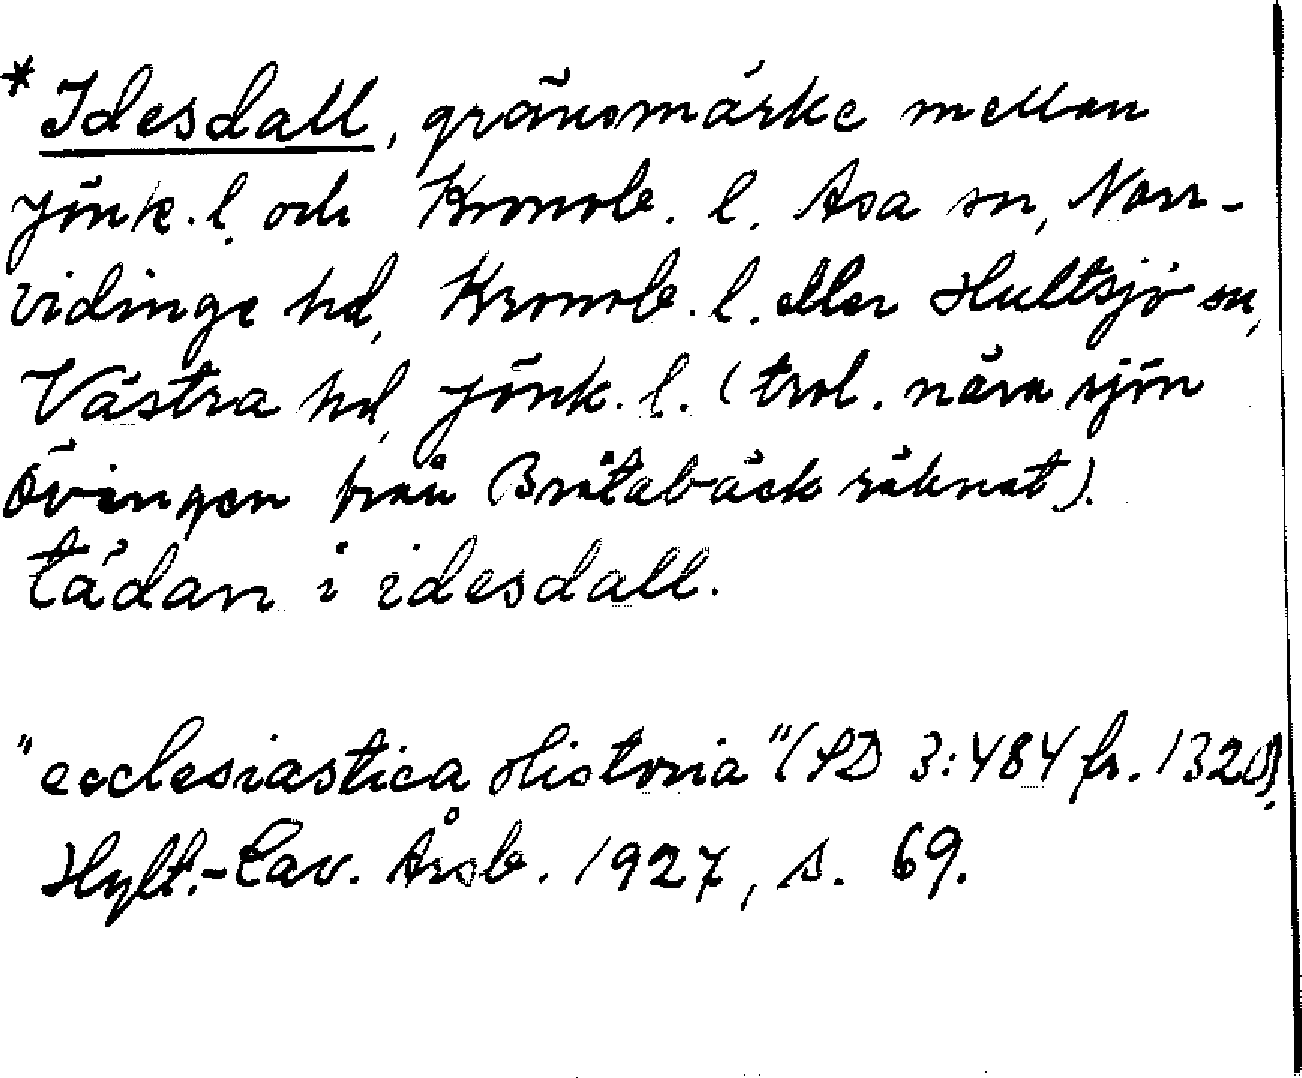 * Idesdall, gränsmärke mellan
Jönk. l. och Kronob. l. Asa sn, Norr-
vidinge hd, Kronob. l. eller Hultsjö sn,
Västra hd, Jönk. l. (trol. nära sjön
Övingen från Bråtabäck räknat).
tädan i idesdall.
"ecclesiastica Historia" (SD 3:484 fr. 1320),
Hylt.-Cav. Årsb. 1927, s. 69.